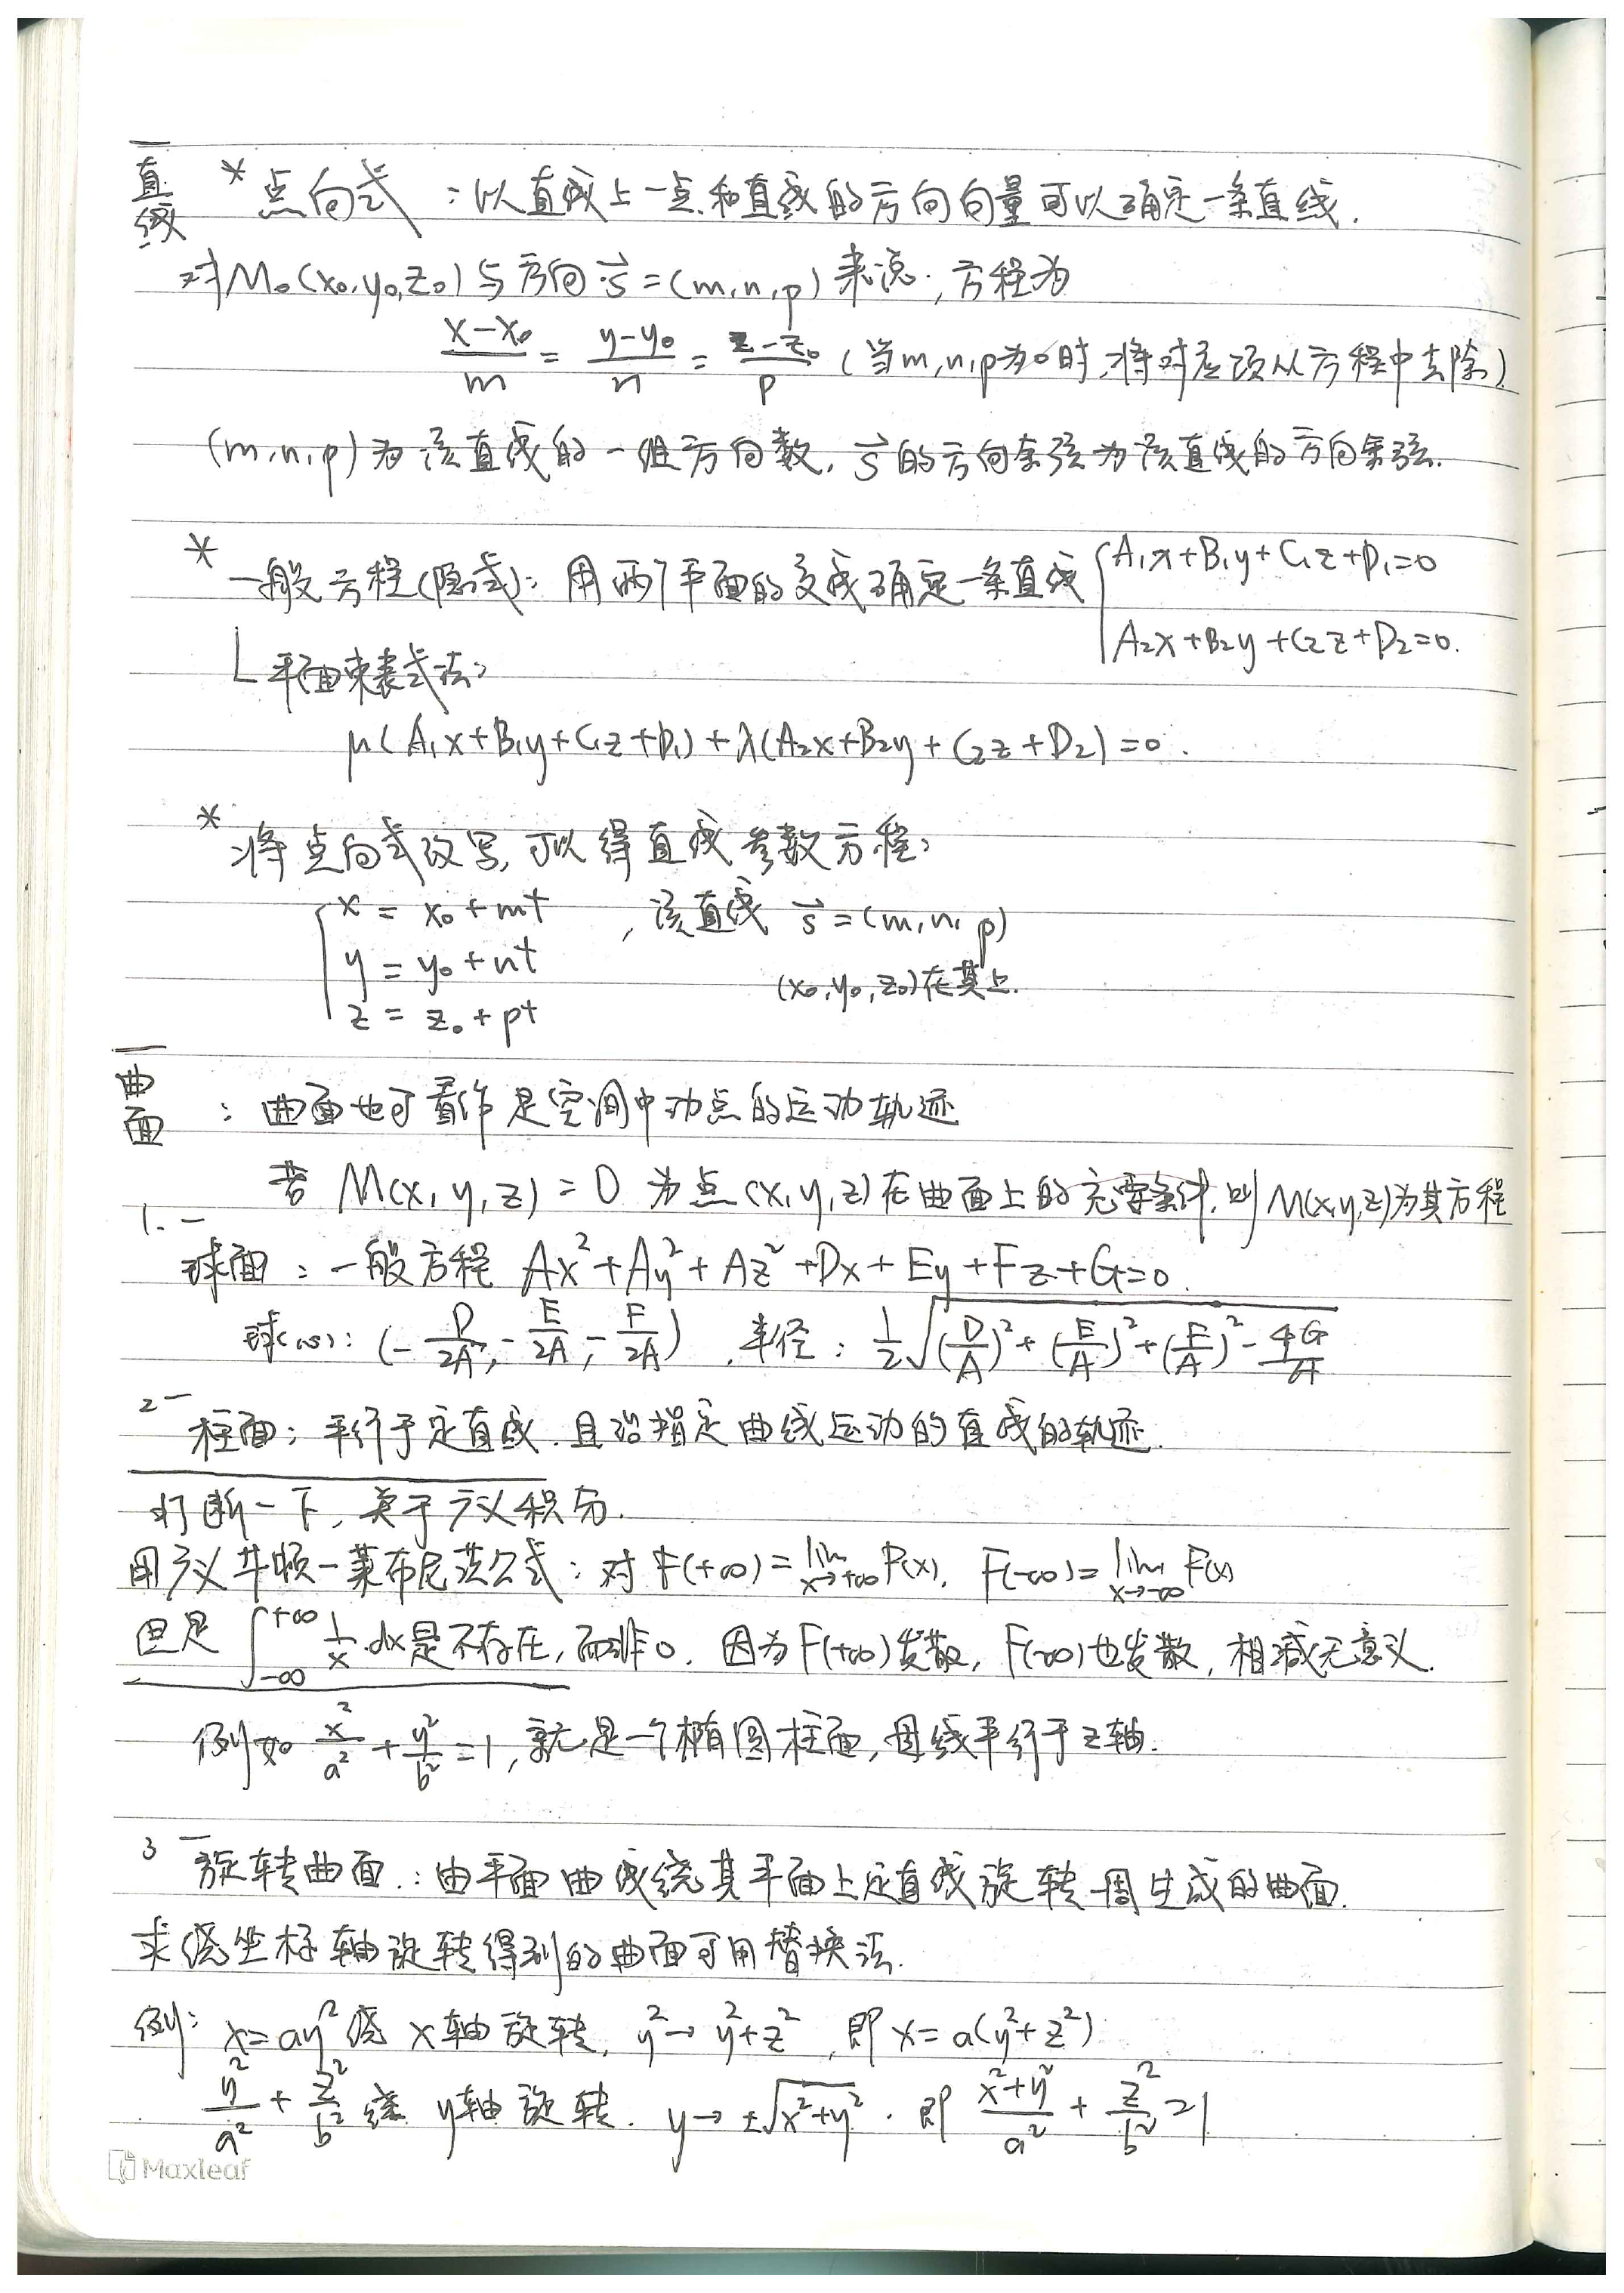 直线 * 点向式:以直线上一点和直线的方向向量可以确定一条直线.
对M₀(x₀,y₀,z₀)与方向 s⃗=(m,n,p)来说,方程为
(x-x₀)/m = (y-y₀)/n = (z-z₀)/p (当m,n,p为0时,将对应项从方程中去除)
(m,n,p)为该直线的一组方向数, s⃗的方向余弦为该直线的方向余弦.
* 一般方程(隐式):用两个平面的交线确定一条直线 { A₁x+B₁y+C₁z+D₁=0
A₂x+B₂y+C₂z+D₂=0.
└ 平面束表式法:
μ(A₁x+B₁y+C₁z+D₁)+λ(A₂x+B₂y+C₂z+D₂)=0.
* 将点向式改写,可以得直线参数方程:
{ x = x₀+mt ,该直线 s⃗=(m,n,p)
y = y₀+nt (x₀,y₀,z₀)在其上.
z = z₀+pt
曲面 :曲面也可看作是空间中动点的运动轨迹
若 M(x,y,z)=0 为点(x,y,z)在曲面上的充要条件,则M(x,y,z)为其方程
1. 球面:一般方程 Ax²+Ay²+Az²+Dx+Ey+Fz+G=0.
球心:(-D/2A,-E/2A,-F/2A),半径:1/2√((D/A)²+(E/A)²+(F/A)²-4G/A)
2 柱面:平行于定直线.且沿指定曲线运动的直线的轨迹.
打断一下,关于广义积分.
用广义牛顿-莱布尼茨公式:对F(+∞)=lim x→+∞ F(x), F(-∞)=lim x→-∞ F(x)
但是 ∫_{-∞}^{+∞} 1/x dx是不存在,而非0.因为F(+∞)发散,F(-∞)也发散,相减无意义.
例如 x²/a²+y²/b²=1,就是一个椭圆柱面,母线平行于z轴.
3 旋转曲面.:由平面曲线绕其平面上定直线旋转一周生成的曲面.
求绕坐标轴旋转得到的曲面可用替换法.
例: x=ay²绕x轴旋转, y²→y²+z²,即x=a(y²+z²)
y²/a²+z²/b² 绕 y轴旋转. y→±√(x²+y²).即 (x²+y²)/a²+z²/b²=1
Maxleaf